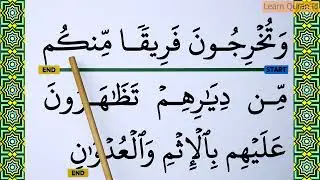 Learn Quran
وَتُخْرِجُونَ فَرِيقًا مِّنكُم
END START
مِّن دِيَـٰرِهِمْ تَظَـٰهَرُونَ
عَلَيْهِم بِٱلْإِثْمِ وَٱلْعُدْوَٰنِ
END